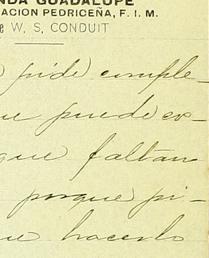 NDA GUADALUPE
ACION PEDRICEÑA, F. I. M.
e W. S, CONDUIT
pide cumple-
ue puede es-
que faltan
porque pi-
ue hacerlo